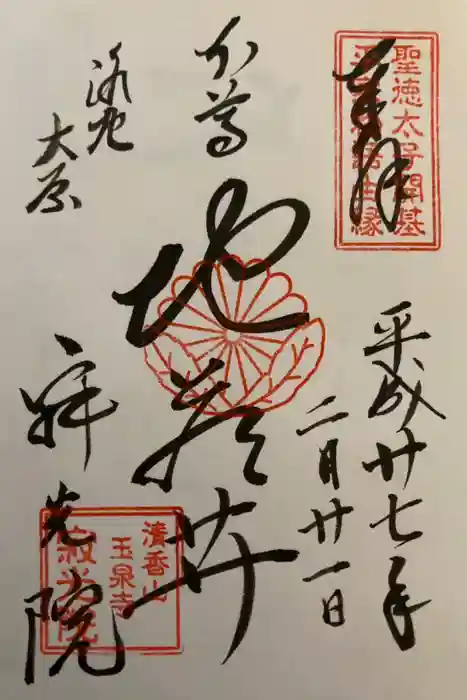 聖徳太子開基
平家物語由縁
奉拝
平成廿七年
二月廿一日
本尊
地蔵𦬇
洛北
大原
寂光院
清香山
玉泉寺
寂光院